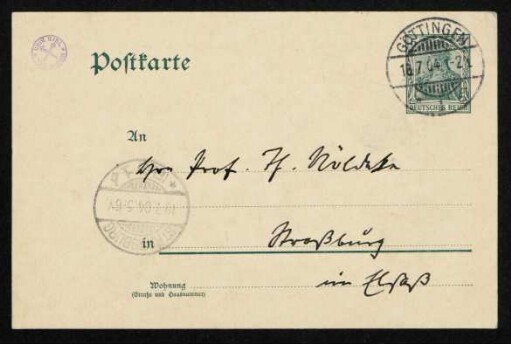 Postkarte
GÖTTINGEN
18.7.04.1-2N
DEUTSCHES REICH
An
Hrn Prof. Th. Nöldeke
19.7.04.5-6V
STRASSBURG
in Straßburg
im Elsaß
Wohnung
(Straße und Hausnummer)